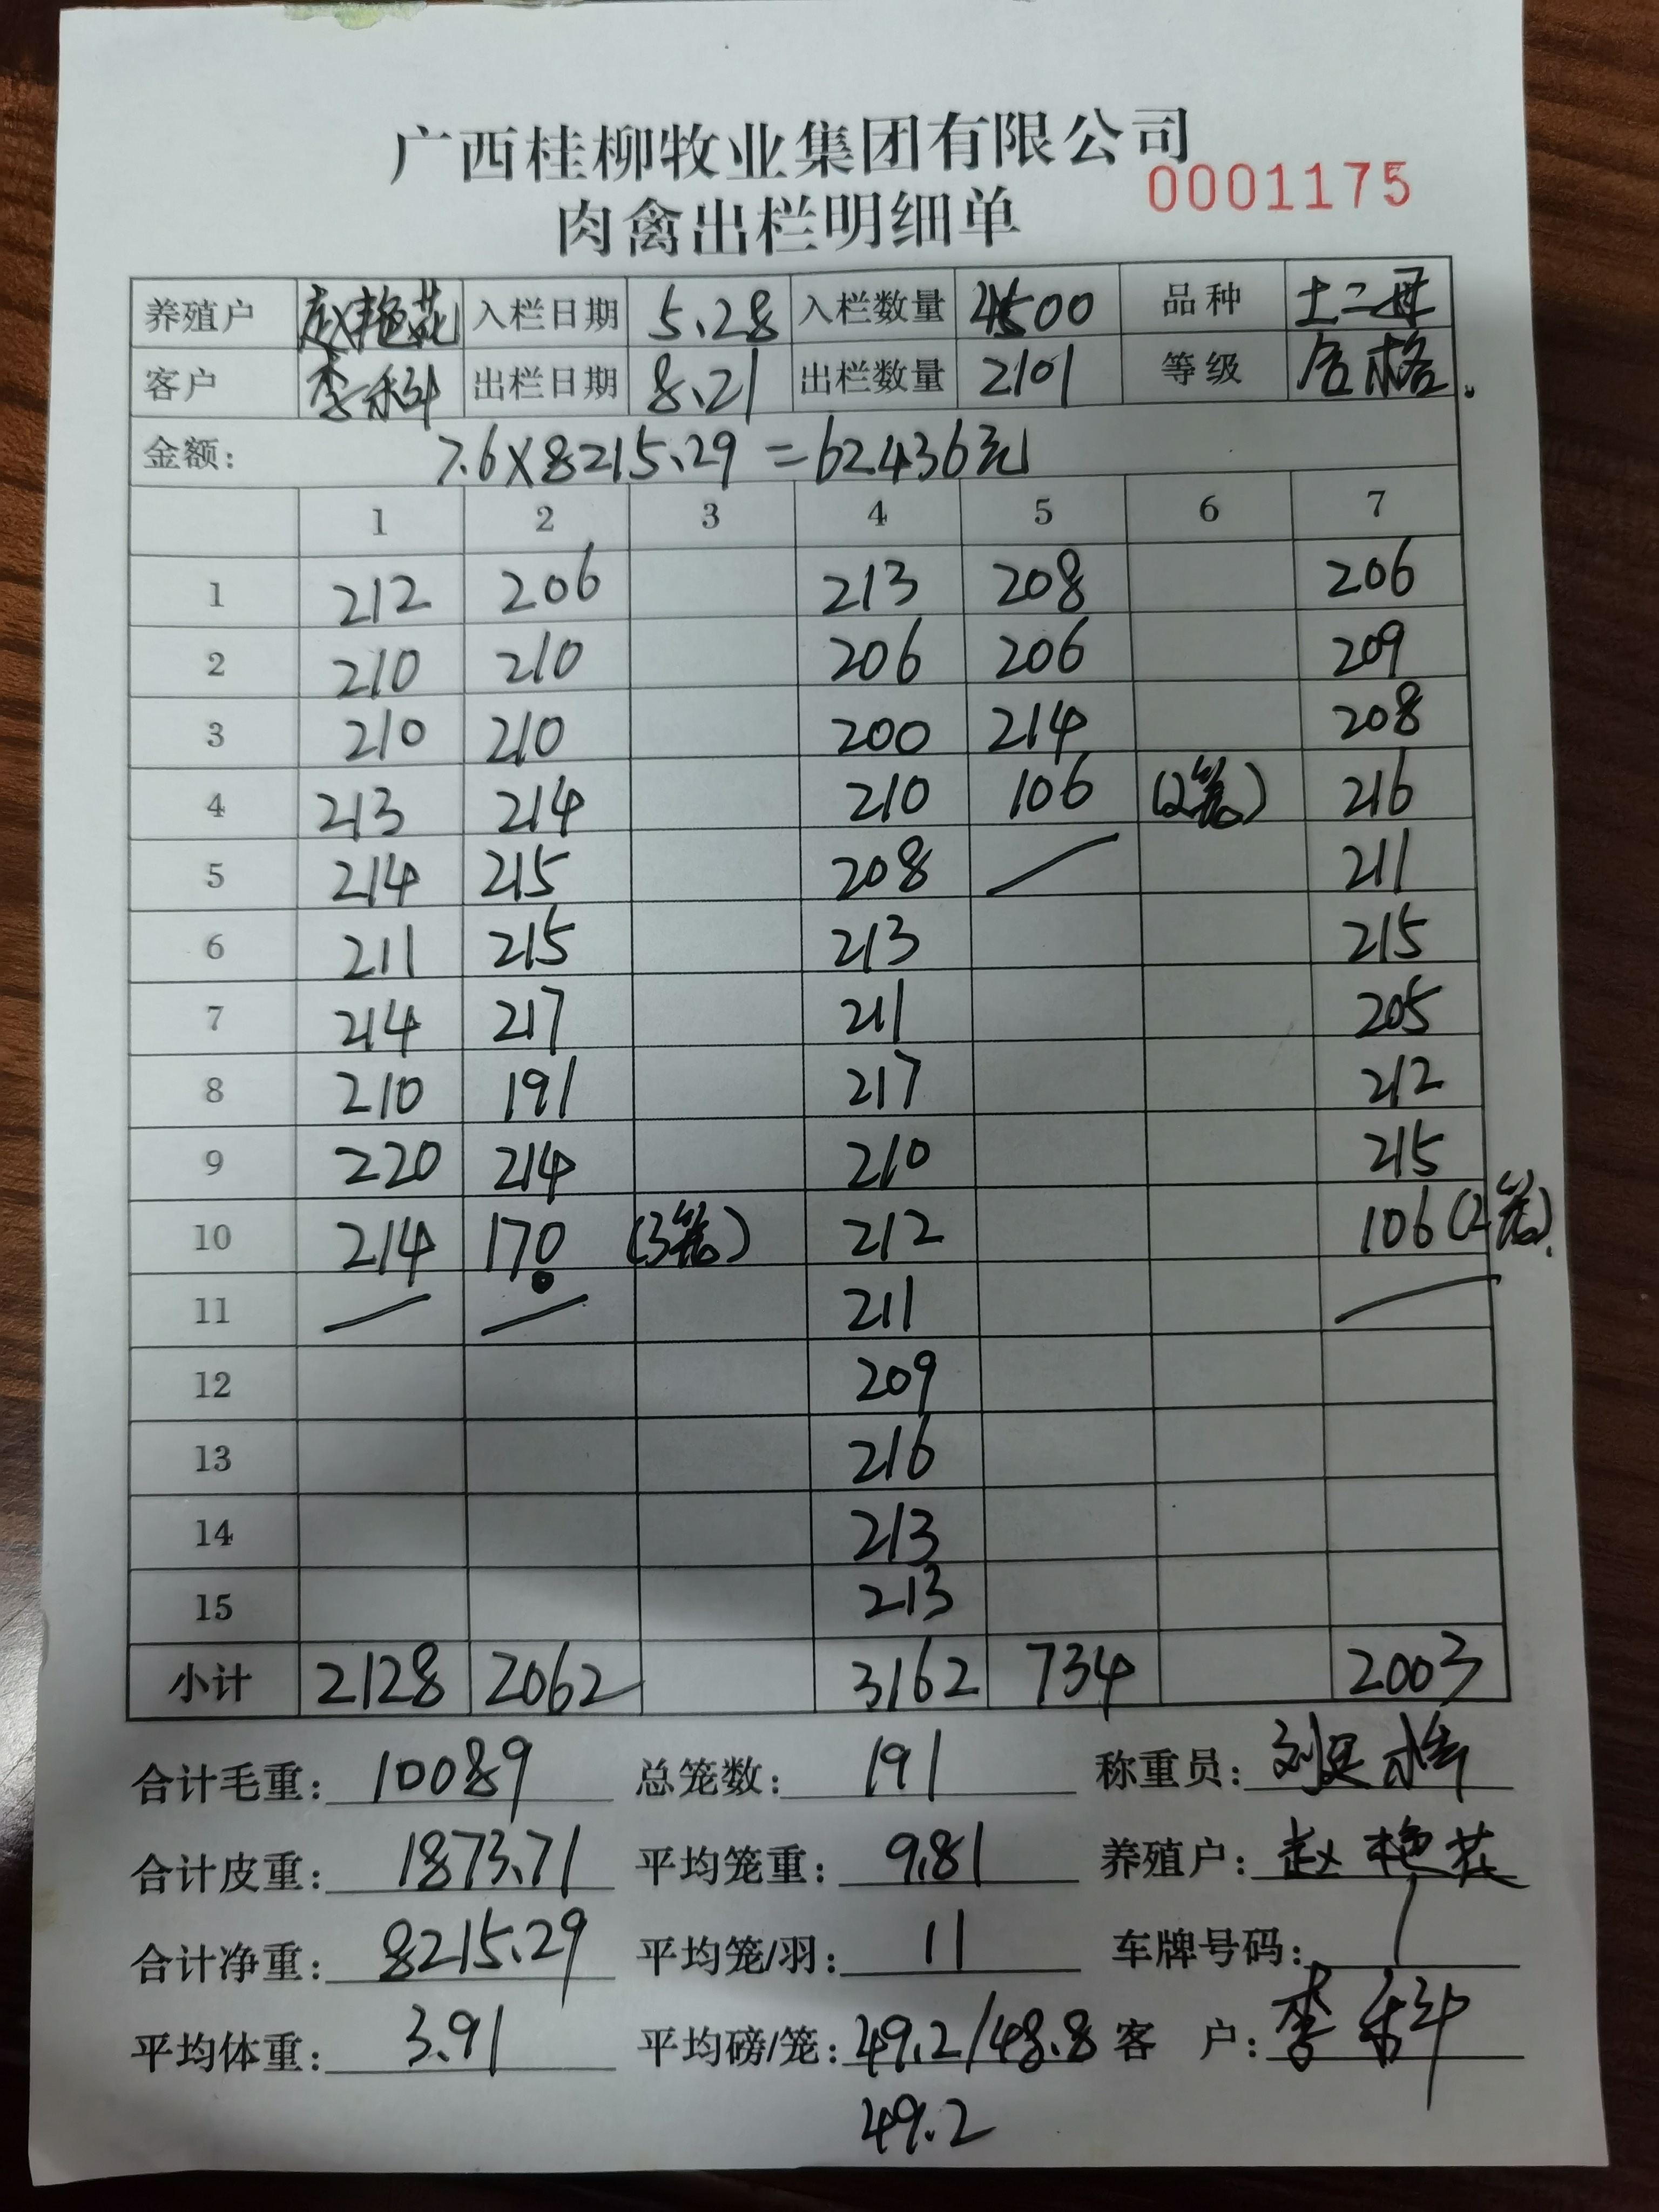 广西桂柳牧业集团有限公司
肉禽出栏明细单 0001175
养殖户 赵艳花 入栏日期 5.28 入栏数量 4500 品种 土二母
客户 李 出栏日期 8.21 出栏数量 2101 等级 合格.
金额: 7.6×8215.29=62436元
1 2 3 4 5 6 7
1 212 206 213 208 206
2 210 210 206 206 209
3 210 210 200 214 208
4 213 214 210 106 (2笼) 216
5 214 215 208 / 211
6 211 215 213 215
7 214 217 211 205
8 210 191 217 212
9 220 214 210 215
10 214 170 (3笼) 212 106 (2笼).
11 / / 211 /
12 209
13 216
14 213
15 213
小计 2128 2062 3162 734 2003
合计毛重: 10089 总笼数: 191 称重员: 刘
合计皮重: 1873.71 平均笼重: 9.81 养殖户: 赵艳花
合计净重: 8215.29 平均笼/羽: 11 车牌号码: /
平均体重: 3.91 平均磅/笼: 49.2/48.8 客 户: 李
49.2